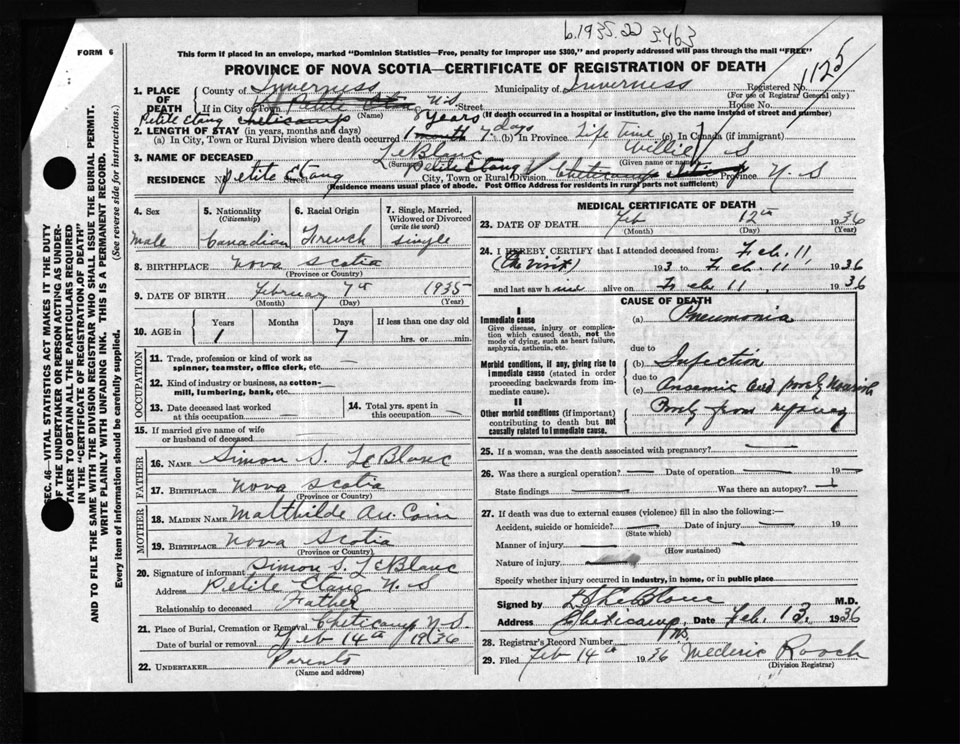 b.1935.22 3463
FORM 6
This form if placed in an envelope, marked "Dominion Statistics—Free, penalty for improper use $300," and properly addressed will pass through the mail "FREE"
PROVINCE OF NOVA SCOTIA—CERTIFICATE OF REGISTRATION OF DEATH
1125
1. PLACE OF DEATH
County of Inverness Municipality of Inverness Registered No.
(For use of Registrar General only)
If in City or Town Petite Etang N.S. Street House No.
(Name) (If death occurred in a hospital or institution, give the name instead of street and number)
Petite Etang Cheticamp 8 years
2. LENGTH OF STAY (in years, months and days)
(a) In City, Town or Rural Division where death occurred 1 month 7 days (b) In Province Life Time (c) In Canada (if immigrant)
3. NAME OF DECEASED LeBlanc Willie S
(Surname) (Given name or names)
RESIDENCE No. Petite Etang Street Petite Etang City, Town or Rural Division Cheticamp Province N. S
(Residence means usual place of abode. Post Office Address for residents in rural parts not sufficient)
4. Sex
Male
5. Nationality
(Citizenship)
Canadian
6. Racial Origin
French
7. Single, Married, Widowed or Divorced
(write the word)
Single
8. BIRTHPLACE Nova Scotia
(Province or Country)
9. DATE OF BIRTH February 7th 1935
(Month) (Day) (Year)
10. AGE in
Years Months Days If less than one day old
1 7 hrs. or min.
OCCUPATION
11. Trade, profession or kind of work as spinner, teamster, office clerk, etc. —
12. Kind of industry or business, as cotton-mill, lumbering, bank, etc. —
13. Date deceased last worked at this occupation —
14. Total yrs. spent in this occupation —
15. If married give name of wife or husband of deceased —
FATHER
16. NAME Simon S. LeBlanc
17. BIRTHPLACE Nova Scotia
(Province or Country)
MOTHER
18. MAIDEN NAME Matthilde Au. Coin
19. BIRTHPLACE Nova Scotia
(Province or Country)
20. Signature of informant Simon S. LeBlanc
Address Petite Etang N. S
Relationship to deceased Father
21. Place of Burial, Cremation or Removal Cheticamp N. S.
Date of burial or removal Feb 14th 1936
22. UNDERTAKER Parents
(Name and address)
MEDICAL CERTIFICATE OF DEATH
23. DATE OF DEATH Feb 12th 1936
(Month) (Day) (Year)
24. I HEREBY CERTIFY that I attended deceased from: Feb. 11,
(One visit) 193 to Feb. 11, 1936
and last saw h alive on Feb 11 1936
CAUSE OF DEATH
I
Immediate cause
Give disease, injury or complication which caused death, not the mode of dying, such as heart failure, asphyxia, asthenia, etc.
(a) Pneumonia
due to
Morbid conditions, if any, giving rise to immediate cause (stated in order proceeding backwards from immediate cause).
(b) Infection
due to
(c) Anaemic and poorly nourish
II
Other morbid conditions (if important) contributing to death but not causally related to immediate cause.
Poorly from
25. If a woman, was the death associated with pregnancy?
26. Was there a surgical operation? — Date of operation — 19—
State findings — Was there an autopsy? —
27. If death was due to external causes (violence) fill in also the following:—
Accident, suicide or homicide? — Date of injury — 19
(State which)
Manner of injury —
(How sustained)
Nature of injury —
Specify whether injury occurred in industry, in home, or in public place
Signed by L LeBlanc M.D.
Address Cheticamp, NS. Date Feb. 13. 1936
28. Registrar's Record Number
29. Filed Feb 14th 1936 Mederic Rooch
(Division Registrar)
SEC. 46—VITAL STATISTICS ACT MAKES IT THE DUTY
OF THE UNDERTAKER OR PERSON ACTING AS UNDER-
TAKER TO OBTAIN ALL THE PARTICULARS REQUIRED
IN THE "CERTIFICATE OF REGISTRATION OF DEATH"
AND TO FILE THE SAME WITH THE DIVISION REGISTRAR WHO SHALL ISSUE THE BURIAL PERMIT.
WRITE PLAINLY WITH UNFADING INK. THIS IS A PERMANENT RECORD.
Every item of information should be carefully supplied. (See reverse side for instructions.)